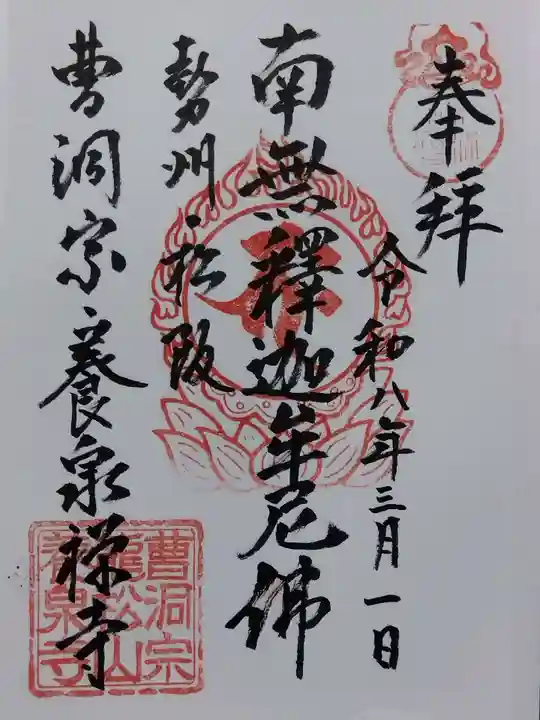 奉拜
令和八年三月一日
南無釋迦牟尼佛
勢州・松阪
曹洞宗・養泉禅寺
曹洞宗
龍松山
養泉寺